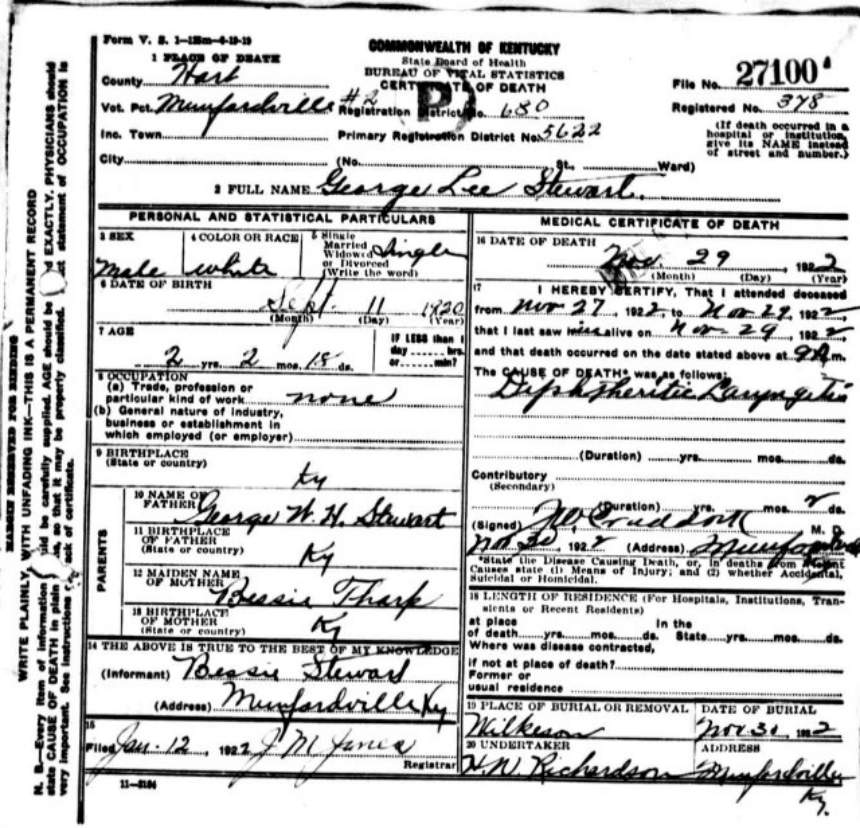 Form V. S. 1—125m—4-19-19
COMMONWEALTH OF KENTUCKY
State Board of Health
BUREAU OF VITAL STATISTICS
CERTIFICATE OF DEATH
File No. 27100
Registered No. 378
(If death occurred in a hospital or institution, give its NAME instead of street and number.)
1 PLACE OF DEATH
County Hart
Vot. Pct. Munfordville #2 Registration District No. 680
Inc. Town Primary Registration District No. 5622
City (No. St. Ward)
2 FULL NAME George Lee Stewart.
PERSONAL AND STATISTICAL PARTICULARS
3 SEX
Male
4 COLOR OR RACE
white
5 Single
Married
Widowed
or Divorced
(Write the word)
Single
6 DATE OF BIRTH
Sept. 11 1920
(Month) (Day) (Year)
7 AGE
2 yrs. 2 mos. 18 ds.
IF LESS than 1
day hrs.
or min?
8 OCCUPATION
(a) Trade, profession or
particular kind of work none
(b) General nature of industry,
business or establishment in
which employed (or employer)
9 BIRTHPLACE
(State or country)
Ky
PARENTS
10 NAME OF
FATHER
George W. H. Stewart
11 BIRTHPLACE
OF FATHER
(State or country)
Ky
12 MAIDEN NAME
OF MOTHER
Bessie Tharp
13 BIRTHPLACE
OF MOTHER
(State or country)
Ky
14 THE ABOVE IS TRUE TO THE BEST OF MY KNOWLEDGE
(Informant) Bessie Stewart
(Address) Munfordville Ky
15
Filed Jan. 12, 1922 J M Jones
Registrar
11—3184
MEDICAL CERTIFICATE OF DEATH
16 DATE OF DEATH
Nov. 29, 1922
(Month) (Day) (Year)
17 I HEREBY CERTIFY, That I attended deceased
from Nov 27, 1922, to Nov. 29, 1922
that I last saw him alive on Nov. 29, 1922,
and that death occurred on the date stated above at 9 m.
The CAUSE OF DEATH* was as follows:
Diphtheritic Laryngetis
(Duration) yrs. mos. ds.
Contributory
(Secondary)
(Duration) yrs. mos. 2 ds.
(Signed) Craddock M. D.
Nov 30, 1922 (Address)
*State the Disease Causing Death, or, in deaths from Violent
Causes state (1) Means of Injury; and (2) whether Accidental,
Suicidal or Homicidal.
18 LENGTH OF RESIDENCE (For Hospitals, Institutions, Tran-
sients or Recent Residents)
at place In the
of death yrs. mos. ds. State yrs. mos. ds.
Where was disease contracted,
if not at place of death?
Former or
usual residence
19 PLACE OF BURIAL OR REMOVAL
Wilkeson
DATE OF BURIAL
Nov 30, 1922
20 UNDERTAKER
H. W. Richardson
ADDRESS
Munfordville
Ky.
MARGIN RESERVED FOR BINDING
WRITE PLAINLY, WITH UNFADING INK—THIS IS A PERMANENT RECORD
N. B.—Every item of information should be carefully supplied. AGE should be EXACTLY. PHYSICIANS should
state CAUSE OF DEATH in plain so that it may be properly classified. statement of OCCUPATION is
very important. See instructions back of certificate.